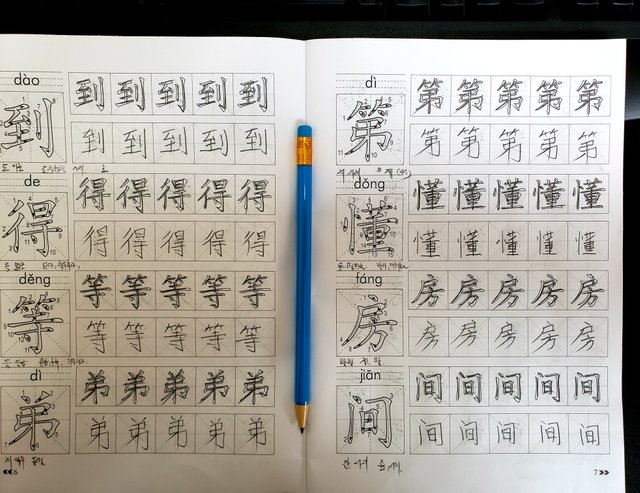 dào
到 到 到 到 到 到
到 到 到 到 到
de
得 得 得 得 得 得
得 得 得 得 得
děng
等 等 等 等 等 等
等 等 等 等 等
dì
弟 弟 弟 弟 弟 弟
弟 弟 弟 弟 弟
6
dì
第 第 第 第 第 第
第 第 第 第 第
dǒng
懂 懂 懂 懂 懂 懂
懂 懂 懂 懂 懂
fáng
房 房 房 房 房 房
房 房 房 房 房
jiān
间 间 间 间 间 间
间 间 间 间 间
7